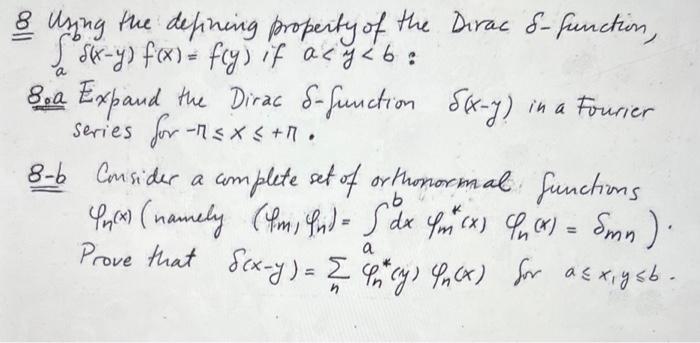 8 Using the defining property of the Dirac δ-function,
∫_a^b δ(x-y) f(x) = f(y) if a<y<b :
8.a Expand the Dirac δ-function δ(x-y) in a Fourier
series for -π ≤ x ≤ +π .
8-b Consider a complete set of orthonormal functions
φ_n(x) (namely (φ_m, φ_n) = ∫_a^b dx φ_m^*(x) φ_n(x) = δ_mn ).
Prove that δ(x-y) = Σ_n φ_n^*(y) φ_n(x) for a≤x,y≤b.